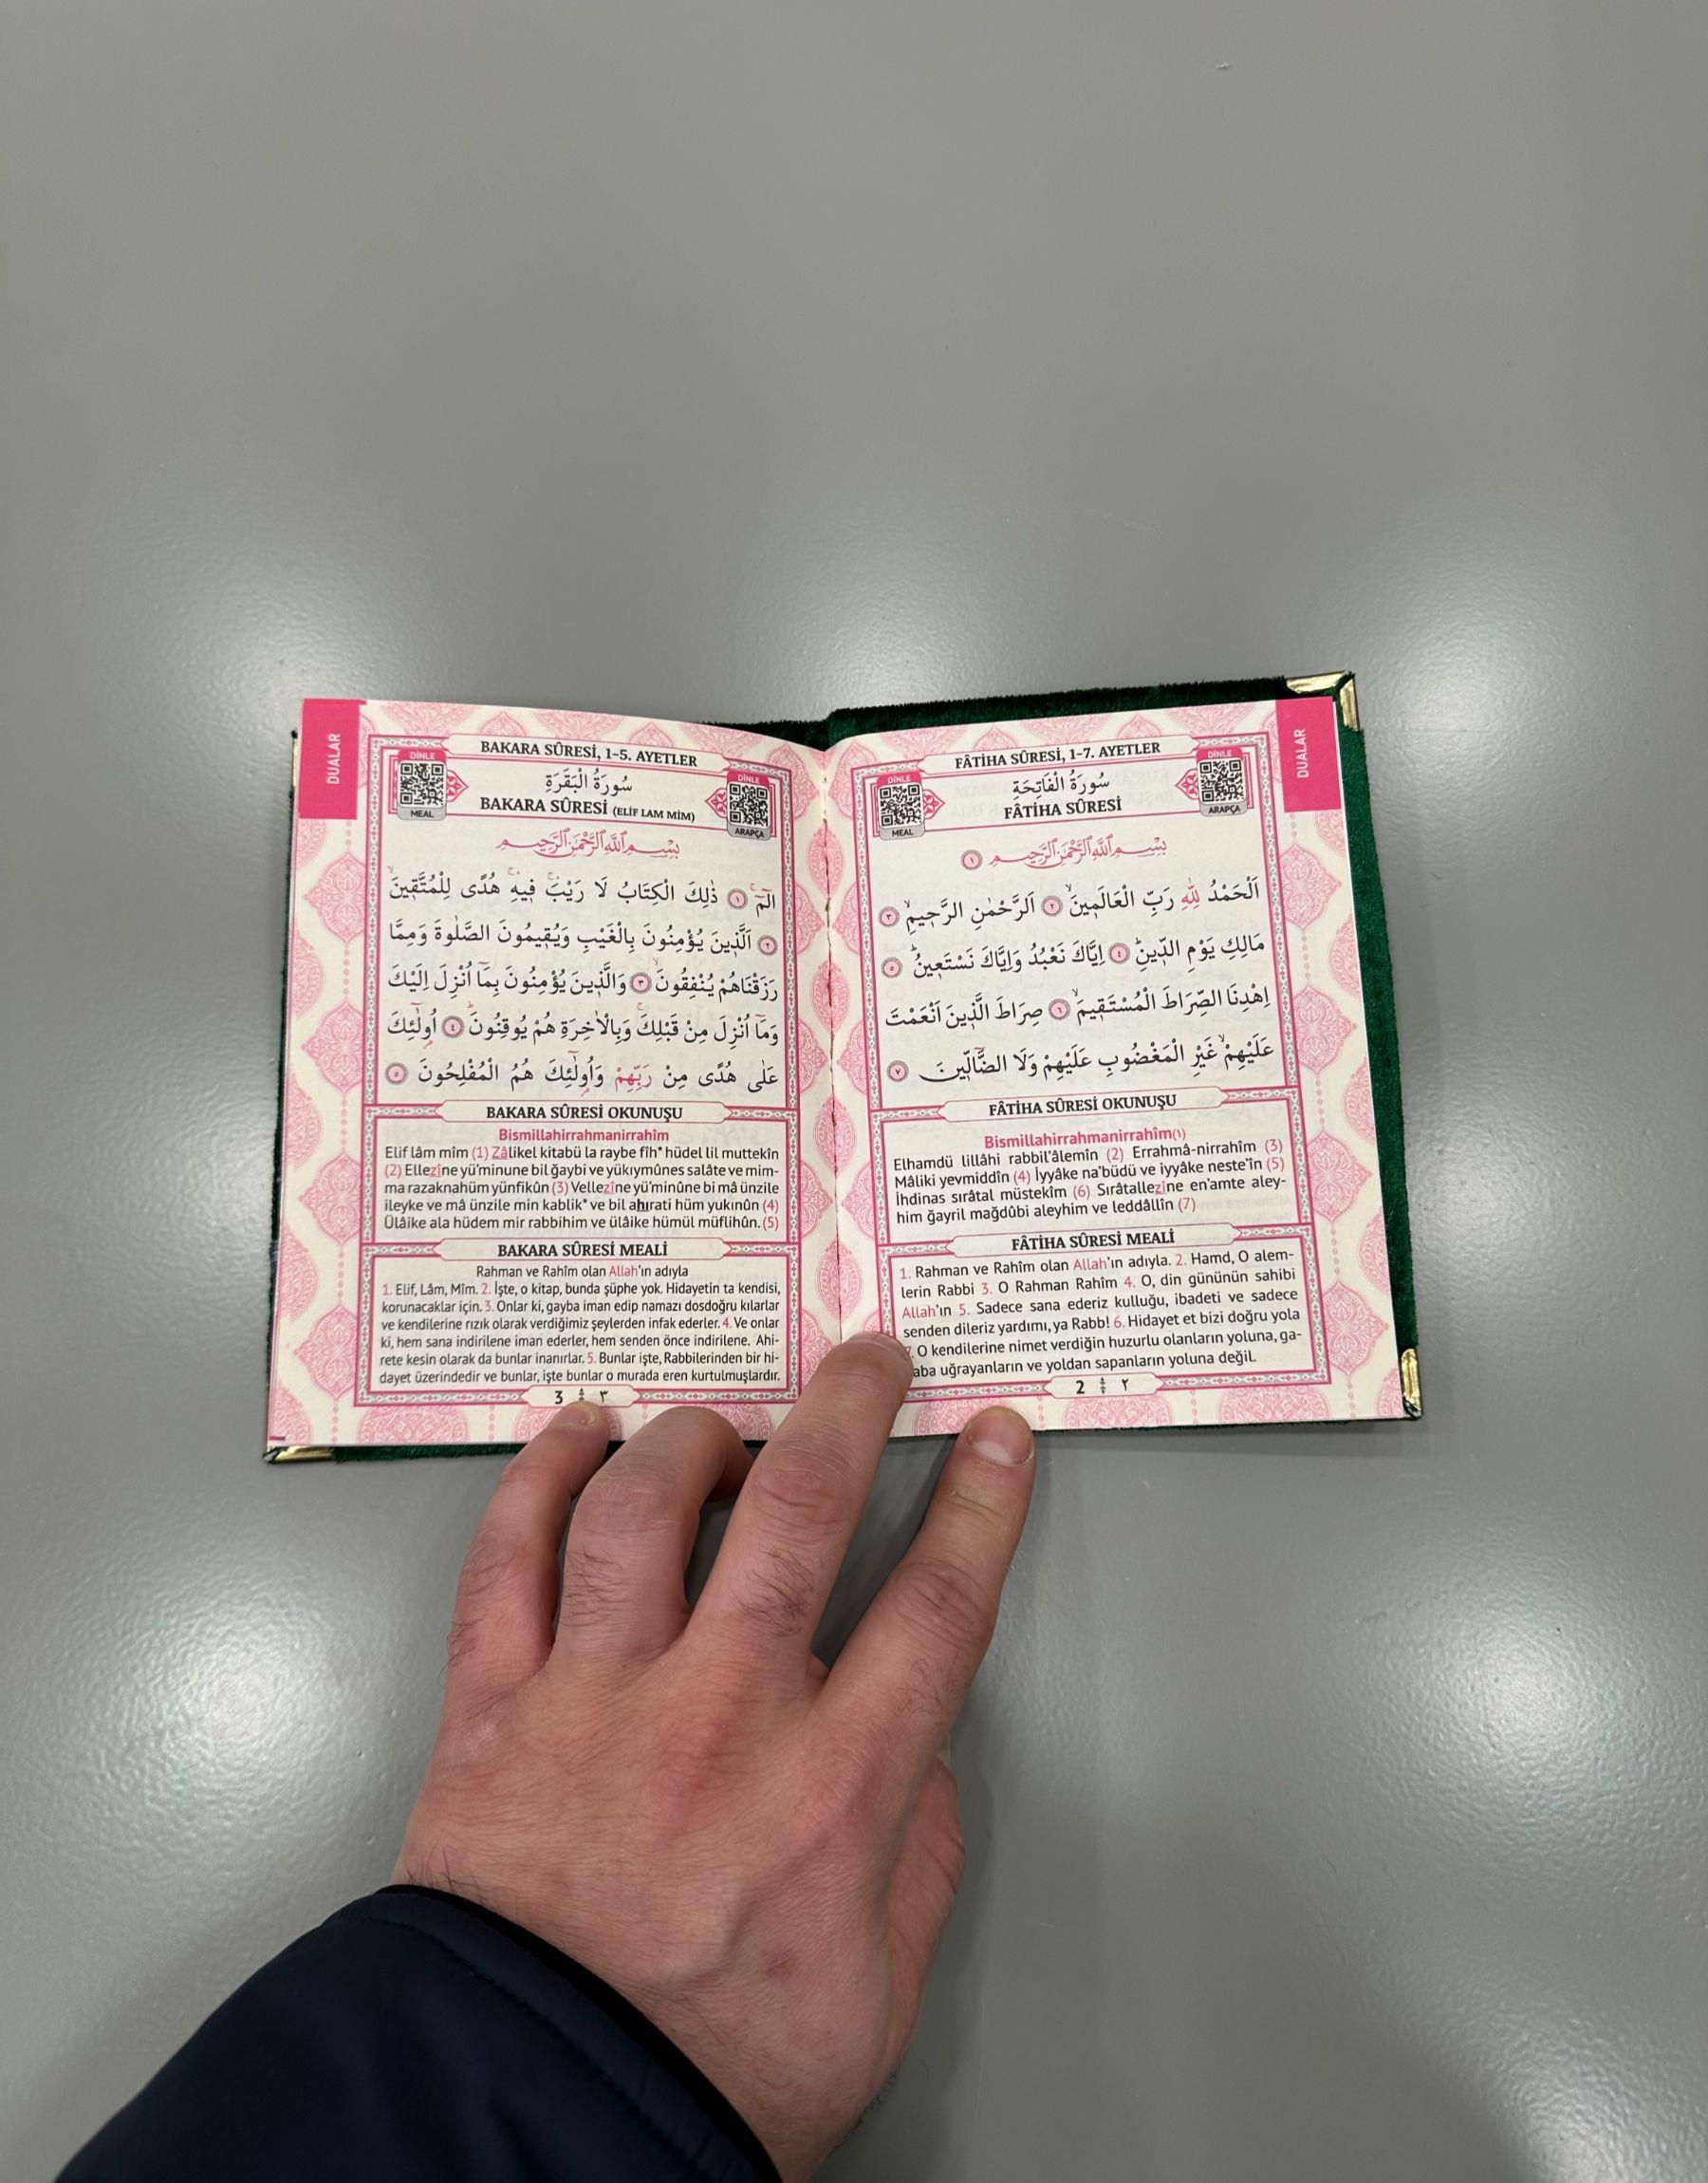 DUALAR
FÂTİHA SÛRESİ, 1-7. AYETLER
DİNLE
MEAL
سُورَةُ الْفَاتِحَةِ
FÂTİHA SÛRESİ
DİNLE
ARAPÇA
بِسْمِ اللّٰهِ الرَّحْمٰنِ الرَّحِيمِ ١
اَلْحَمْدُ لِلّٰهِ رَبِّ الْعَالَمٖينَۙ ٢ اَلرَّحْمٰنِ الرَّحٖيمِۙ ٣
مَالِكِ يَوْمِ الدّٖينِؕ ٤ اِيَّاكَ نَعْبُدُ وَاِيَّاكَ نَسْتَعٖينُؕ ٥
اِهْدِنَا الصِّرَاطَ الْمُسْتَقٖيمَۙ ٦ صِرَاطَ الَّذٖينَ اَنْعَمْتَ
عَلَيْهِمْۙ غَيْرِ الْمَغْضُوبِ عَلَيْهِمْ وَلَا الضَّٓالّٖينَ ٧
FÂTİHA SÛRESİ OKUNUŞU
Bismillahirrahmanirrahîm(1)
Elhamdü lillâhi rabbil'âlemîn (2) Errahmâ-nirrahîm (3)
Mâliki yevmiddîn (4) İyyâke na'büdü ve iyyâke neste'în (5)
İhdinas sırâtal müstekîm (6) Sırâtallezîne en'amte aley-
him ğayril mağdûbi aleyhim ve leddâllîn (7)
FÂTİHA SÛRESİ MEALİ
1. Rahman ve Rahîm olan Allah'ın adıyla. 2. Hamd, O alem-
lerin Rabbi 3. O Rahman Rahîm 4. O, din gününün sahibi
Allah'ın 5. Sadece sana ederiz kulluğu, ibadeti ve sadece
senden dileriz yardımı, ya Rabb! 6. Hidayet et bizi doğru yola
7. O kendilerine nimet verdiğin huzurlu olanların yoluna, ga-
aba uğrayanların ve yoldan sapanların yoluna değil.
2 ٢
DUALAR
BAKARA SÛRESİ, 1-5. AYETLER
DİNLE
MEAL
سُورَةُ الْبَقَرَةِ
BAKARA SÛRESİ (ELİF LAM MİM)
DİNLE
ARAPÇA
بِسْمِ اللّٰهِ الرَّحْمٰنِ الرَّحِيمِ
الٓمٓۚ ١ ذٰلِكَ الْكِتَابُ لَا رَيْبَۚ فٖيهِۚ هُدًى لِلْمُتَّقٖينَۙ
٢ اَلَّذٖينَ يُؤْمِنُونَ بِالْغَيْبِ وَيُقٖيمُونَ الصَّلٰوةَ وَمِمَّا
رَزَقْنَاهُمْ يُنْفِقُونَۙ ٣ وَالَّذٖينَ يُؤْمِنُونَ بِمَٓا اُنْزِلَ اِلَيْكَ
وَمَٓا اُنْزِلَ مِنْ قَبْلِكَۚ وَبِالْاٰخِرَةِ هُمْ يُوقِنُونَؕ ٤ اُولٰٓئِكَ
عَلٰى هُدًى مِنْ رَبِّهِمْ وَاُولٰٓئِكَ هُمُ الْمُفْلِحُونَ ٥
BAKARA SÛRESİ OKUNUŞU
Bismillahirrahmanirrahîm
Elif lâm mîm (1) Zâlikel kitabü la raybe fîh* hüdel lil muttekîn
(2) Ellezîne yü'minune bil ğaybi ve yükıymûnes salâte ve mim-
ma razaknahüm yünfikûn (3) Vellezîne yü'minûne bi mâ ünzile
ileyke ve mâ ünzile min kablik* ve bil ahırati hüm yukınûn (4)
Ülâike ala hüdem mir rabbihim ve ülâike hümül müflihûn. (5)
BAKARA SÛRESİ MEALİ
Rahman ve Rahîm olan Allah'ın adıyla
1. Elif, Lâm, Mîm. 2. İşte, o kitap, bunda şüphe yok. Hidayetin ta kendisi,
korunacaklar için. 3. Onlar ki, gayba iman edip namazı dosdoğru kılarlar
ve kendilerine rızık olarak verdiğimiz şeylerden infak ederler. 4. Ve onlar
ki, hem sana indirilene iman ederler, hem senden önce indirilene. Ahi-
rete kesin olarak da bunlar inanırlar. 5. Bunlar işte, Rabbilerinden bir hi-
dayet üzerindedir ve bunlar, işte bunlar o murada eren kurtulmuşlardır.
3 ٣